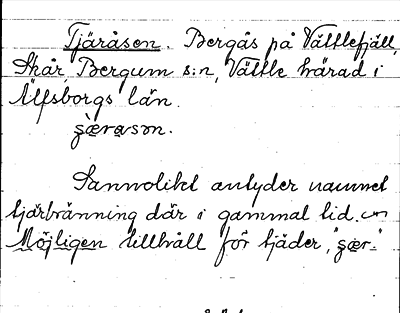 Tjäråsen. Bergås på Vättlefjäll,
Skår, Bergum s:n, Vättle härad i
Älfsborgs län.
særasɔn.
Sannolikt antyder namnet
tjärbränning där i gammal tid.
Möjligen tillhåll för tjäder, "sær."